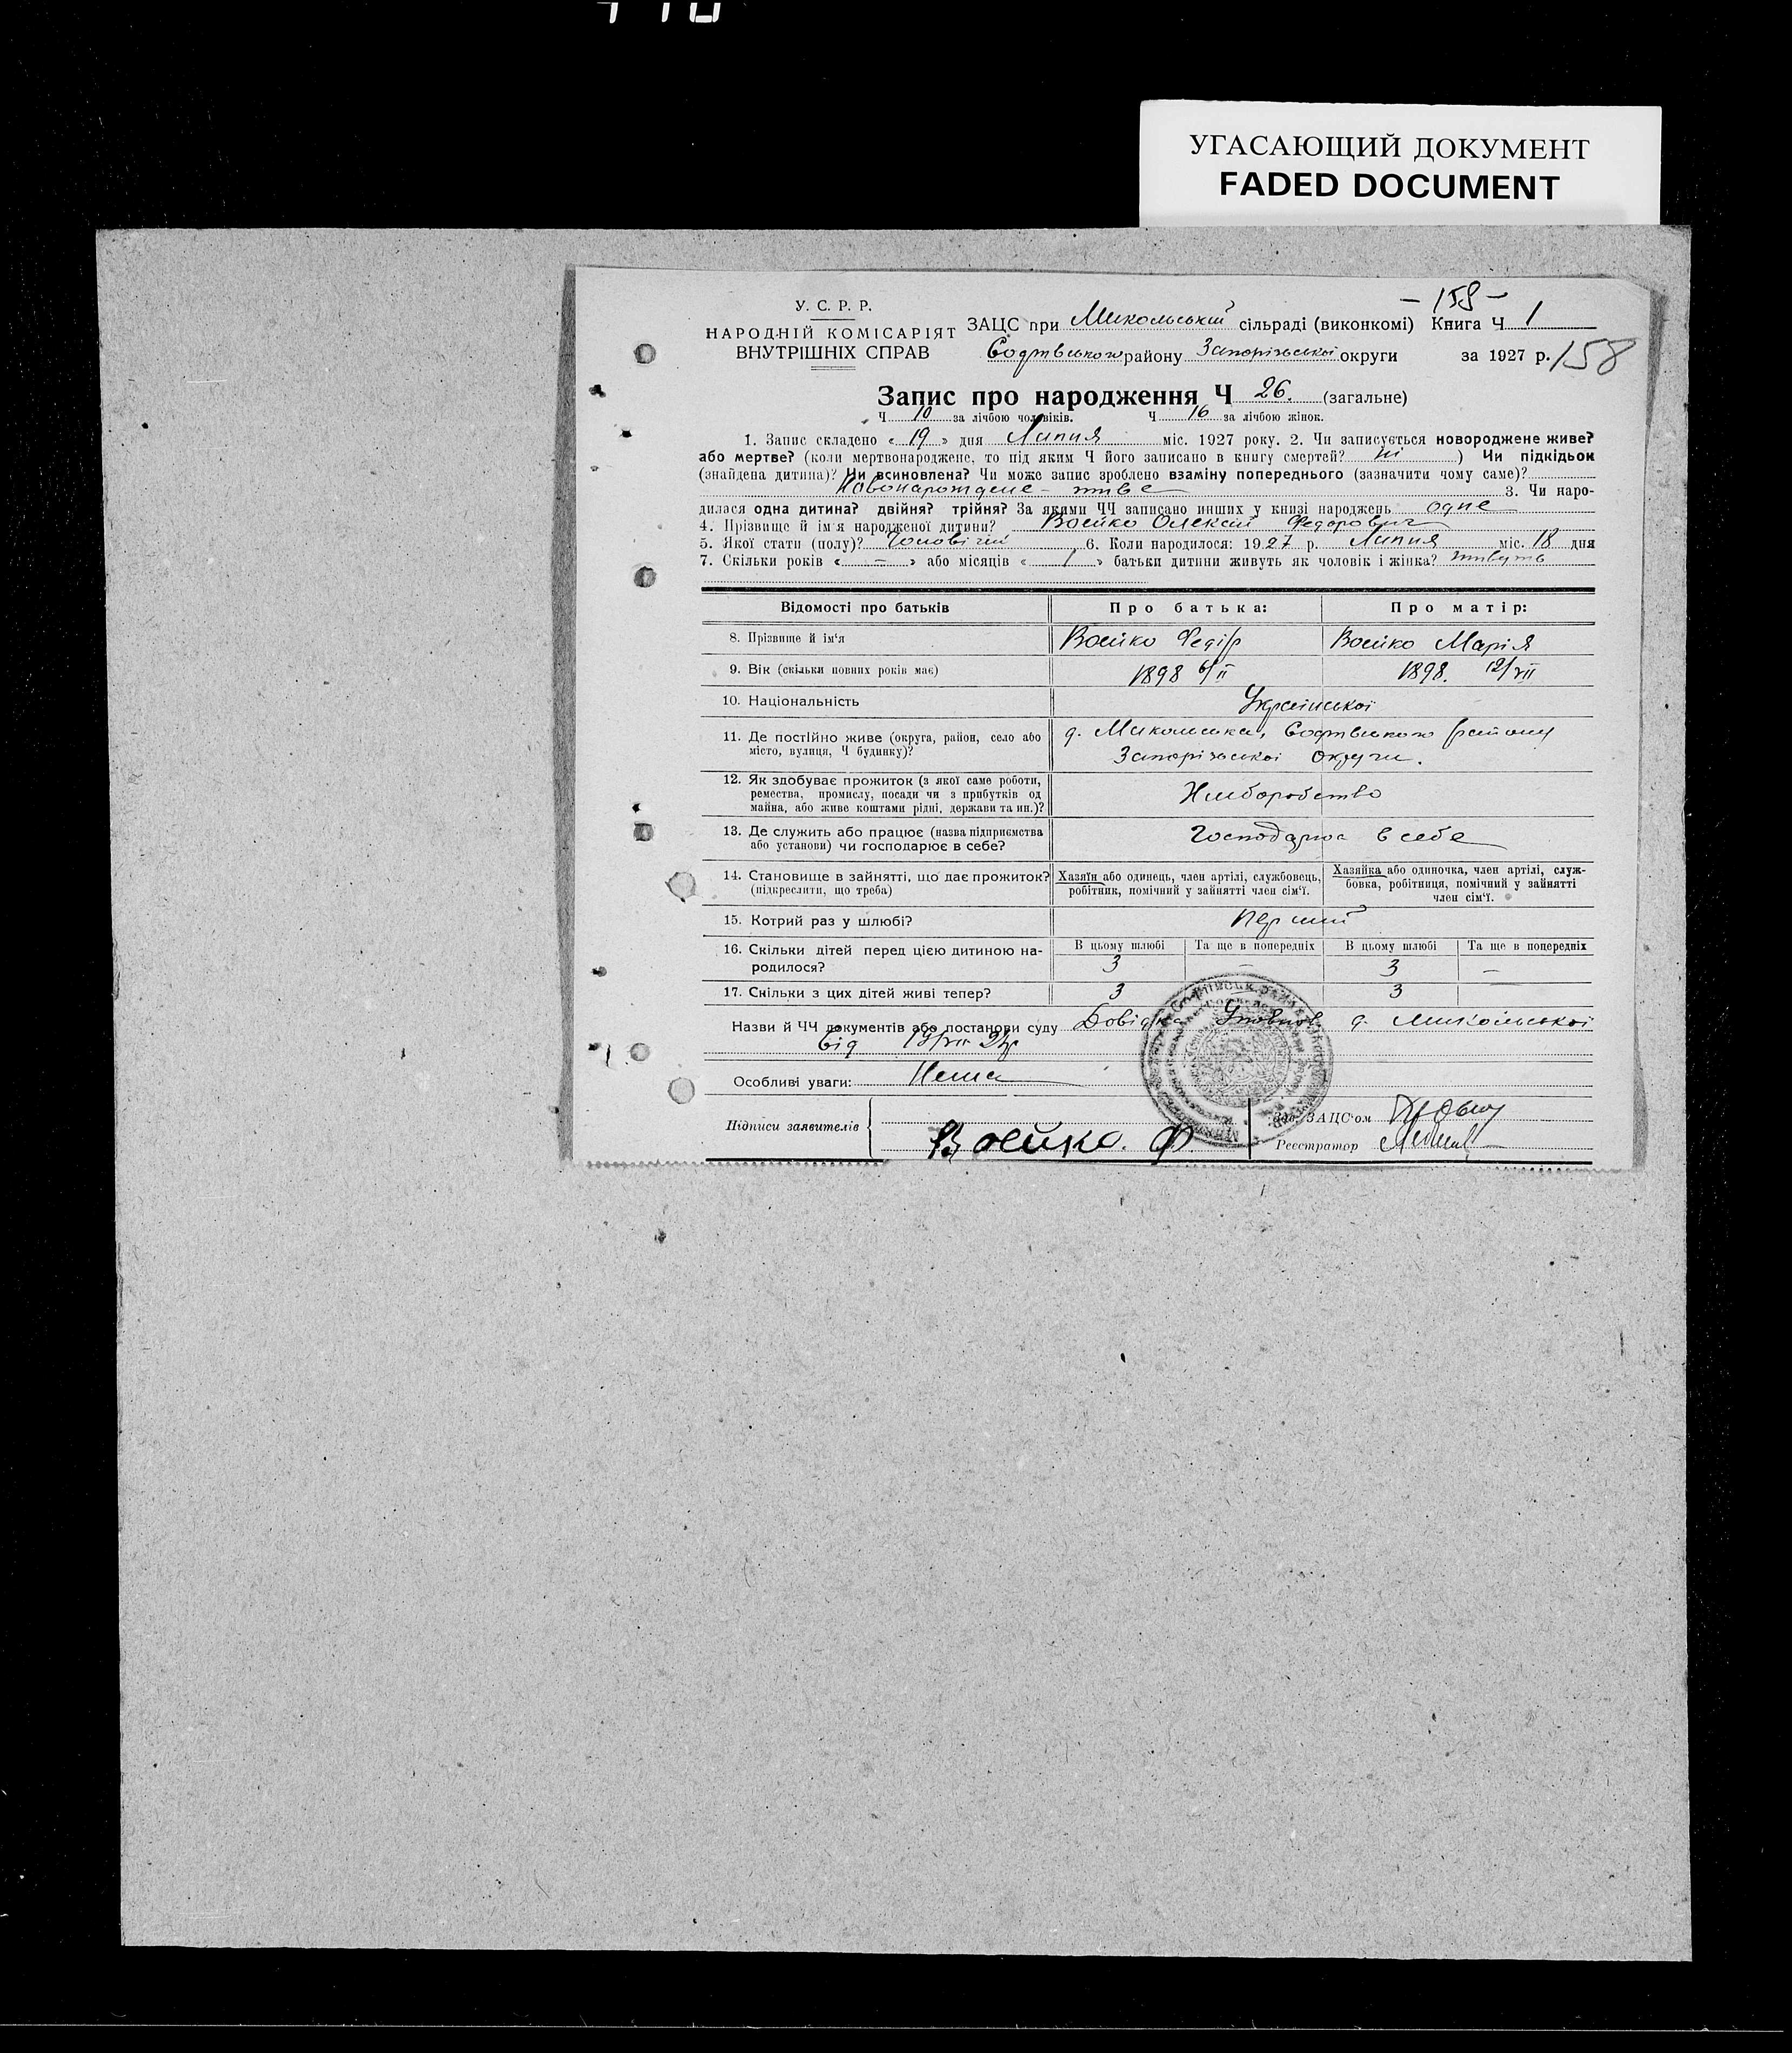 УГАСАЮЩИЙ ДОКУМЕНТ
FADED DOCUMENT
У. С. Р. Р.
НАРОДНІЙ КОМІСАРІЯТ
ВНУТРІШНІХ СПРАВ
– 158 –
ЗАЦС при Микольській сільраді (виконкомі) Книга Ч 1
Софіївського району Запорізької округи за 1927 р. 158
Запис про народження Ч 26. (загальне)
Ч 10 за лічбою чоловіків. Ч 16 за лічбою жінок.
1. Запис складено « 19 » дня Липня міс. 1927 року. 2. Чи записується новороджене живе?
або мертве? (коли мертвонароджене, то під яким Ч його записано в книгу смертей? ні ) Чи підкідьок
(знайдена дитина)? Чи всиновлена? Чи може запис зроблено взаміну попереднього (зазначити чому саме)?
Новонарождене – живе 3. Чи наро-
дилася одна дитина? двійня? трійня? За якими ЧЧ записано инших у книзі народжень одне
4. Прізвище й ім'я народженої дитини? Воєйко Олексій Федорович
5. Якої стати (полу)? Чоловічий 6. Коли народилося: 1927 р. Липня міс. 18 дня
7. Скільки років « – » або місяців « / » батьки дитини живуть як чоловік і жінка? живуть
Відомості про батьків Про батька: Про матір:
8. Прізвище й ім'я Воєйко Федір Воєйко Марія
9. Вік (скільки повних років має) 1898 6/II 1898. 12/VII
10. Національність Української
11. Де постійно живе (округа, район, село або
місто, вулиця, Ч будинку)?
д. Микольська, Софіївського району
Запорізької округи.
12. Як здобуває прожиток (з якої саме роботи,
ремества, промислу, посади чи з прибутків од
майна, або живе коштами рідні, держави та ин.)?
Хліборобство
13. Де служить або працює (назва підприємства
або установи) чи господарює в себе?
Господарює в себе
14. Становище в зайнятті, що дає прожиток?
(підкреслити, що треба)
Хазяїн або одинець, член артілі, службовець,
робітник, помічний у зайнятті член сім'ї.
Хазяйка або одиночка, член артілі, служ-
бовка, робітниця, помічний у зайнятті
член сім'ї.
15. Котрий раз у шлюбі? Перший
16. Скільки дітей перед цією дитиною на-
родилося?
В цьому шлюбі Та ще в попередніх В цьому шлюбі Та ще в попередніх
3 – 3 –
17. Скільки з цих дітей живі тепер? 3 3
Назви й ЧЧ документів або постанови суду Довідка Уповнов. д. Микольської
від 19/VII 27р
Особливі уваги: Нема
Підписи заявителів Воєйко. Ф.
Зав. ЗАЦС'ом
Реєстратор